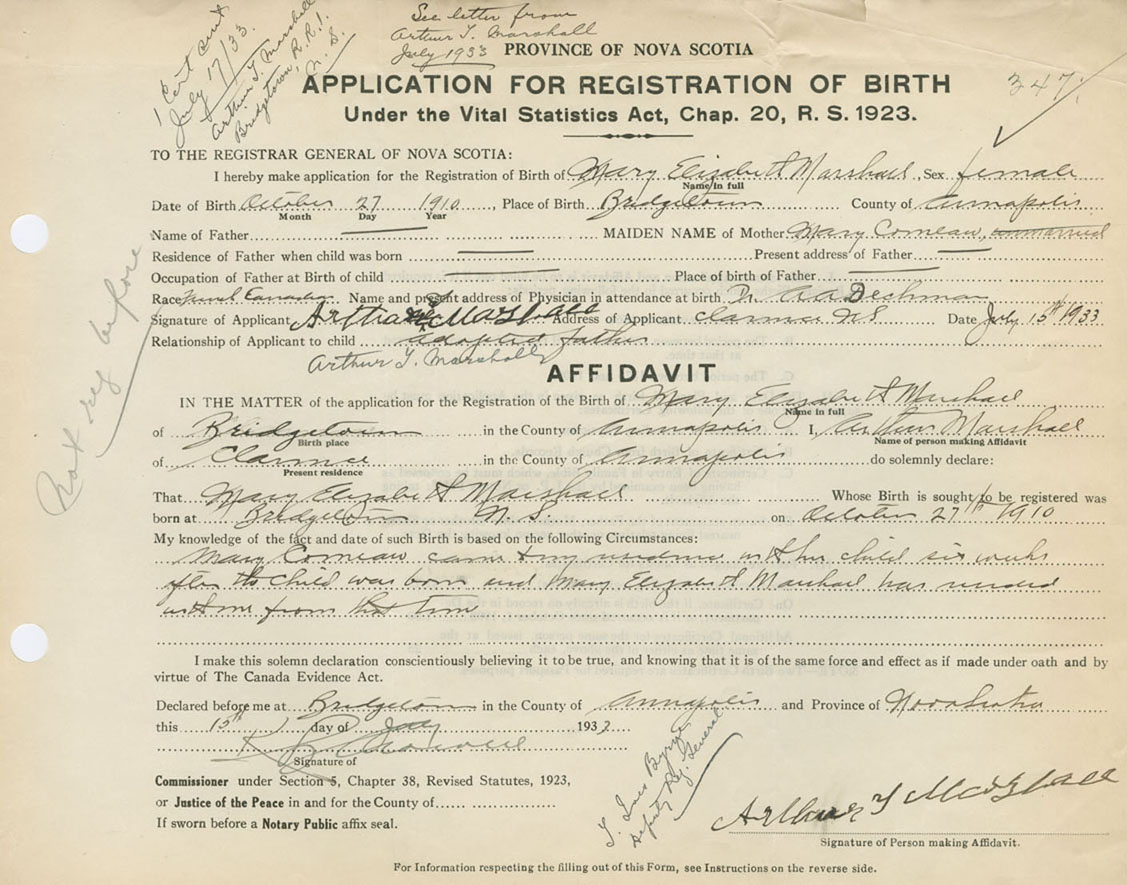 See letter from
Arthur T. Marshall
July 1933
1 Cert sent
July 17/33.
Arthur T. Marshall
Bridgetown, R.R.1.
N. S.
PROVINCE OF NOVA SCOTIA
347
APPLICATION FOR REGISTRATION OF BIRTH
Under the Vital Statistics Act, Chap. 20, R. S. 1923.
TO THE REGISTRAR GENERAL OF NOVA SCOTIA:
I hereby make application for the Registration of Birth of Mary Elizabeth Marshall, Sex female
Name in full
Date of Birth October 27 1910, Place of Birth Bridgetown County of Annapolis
Month Day Year
Name of Father MAIDEN NAME of Mother Mary Comeau, unmarried
Residence of Father when child was born Present address of Father
Occupation of Father at Birth of child Place of birth of Father
Race French Canadian Name and present address of Physician in attendance at birth Dr. Dechman
Signature of Applicant Arthur Marshall Address of Applicant Clarence N S Date July 15th 1933
Relationship of Applicant to child adopted father
Arthur T. Marshall
Not reg before
AFFIDAVIT
IN THE MATTER of the application for the Registration of the Birth of Mary Elizabeth Marshall
Name in full
of Bridgetown in the County of Annapolis I, Arthur Marshall
Birth place Name of person making Affidavit
of Clarence in the County of Annapolis do solemnly declare:
Present residence
That Mary Elizabeth Marshall Whose Birth is sought to be registered was
born at Bridgetown N. S on October 27th 1910
My knowledge of the fact and date of such Birth is based on the following Circumstances:
Mary Comeau came to my residence with her child six weeks
after the child was born and Mary Elizabeth Marshall has resided
with me from that time
I make this solemn declaration conscientiously believing it to be true, and knowing that it is of the same force and effect as if made under oath and by
virtue of The Canada Evidence Act.
Declared before me at Bridgetown in the County of Annapolis and Province of Nova Scotia
this 15th day of July 1933
Signature of
Commissioner under Section 5, Chapter 38, Revised Statutes, 1923,
or Justice of the Peace in and for the County of
If sworn before a Notary Public affix seal.
Deputy Reg. General
Arthur T Marshall
Signature of Person making Affidavit.
For Information respecting the filling out of this Form, see Instructions on the reverse side.